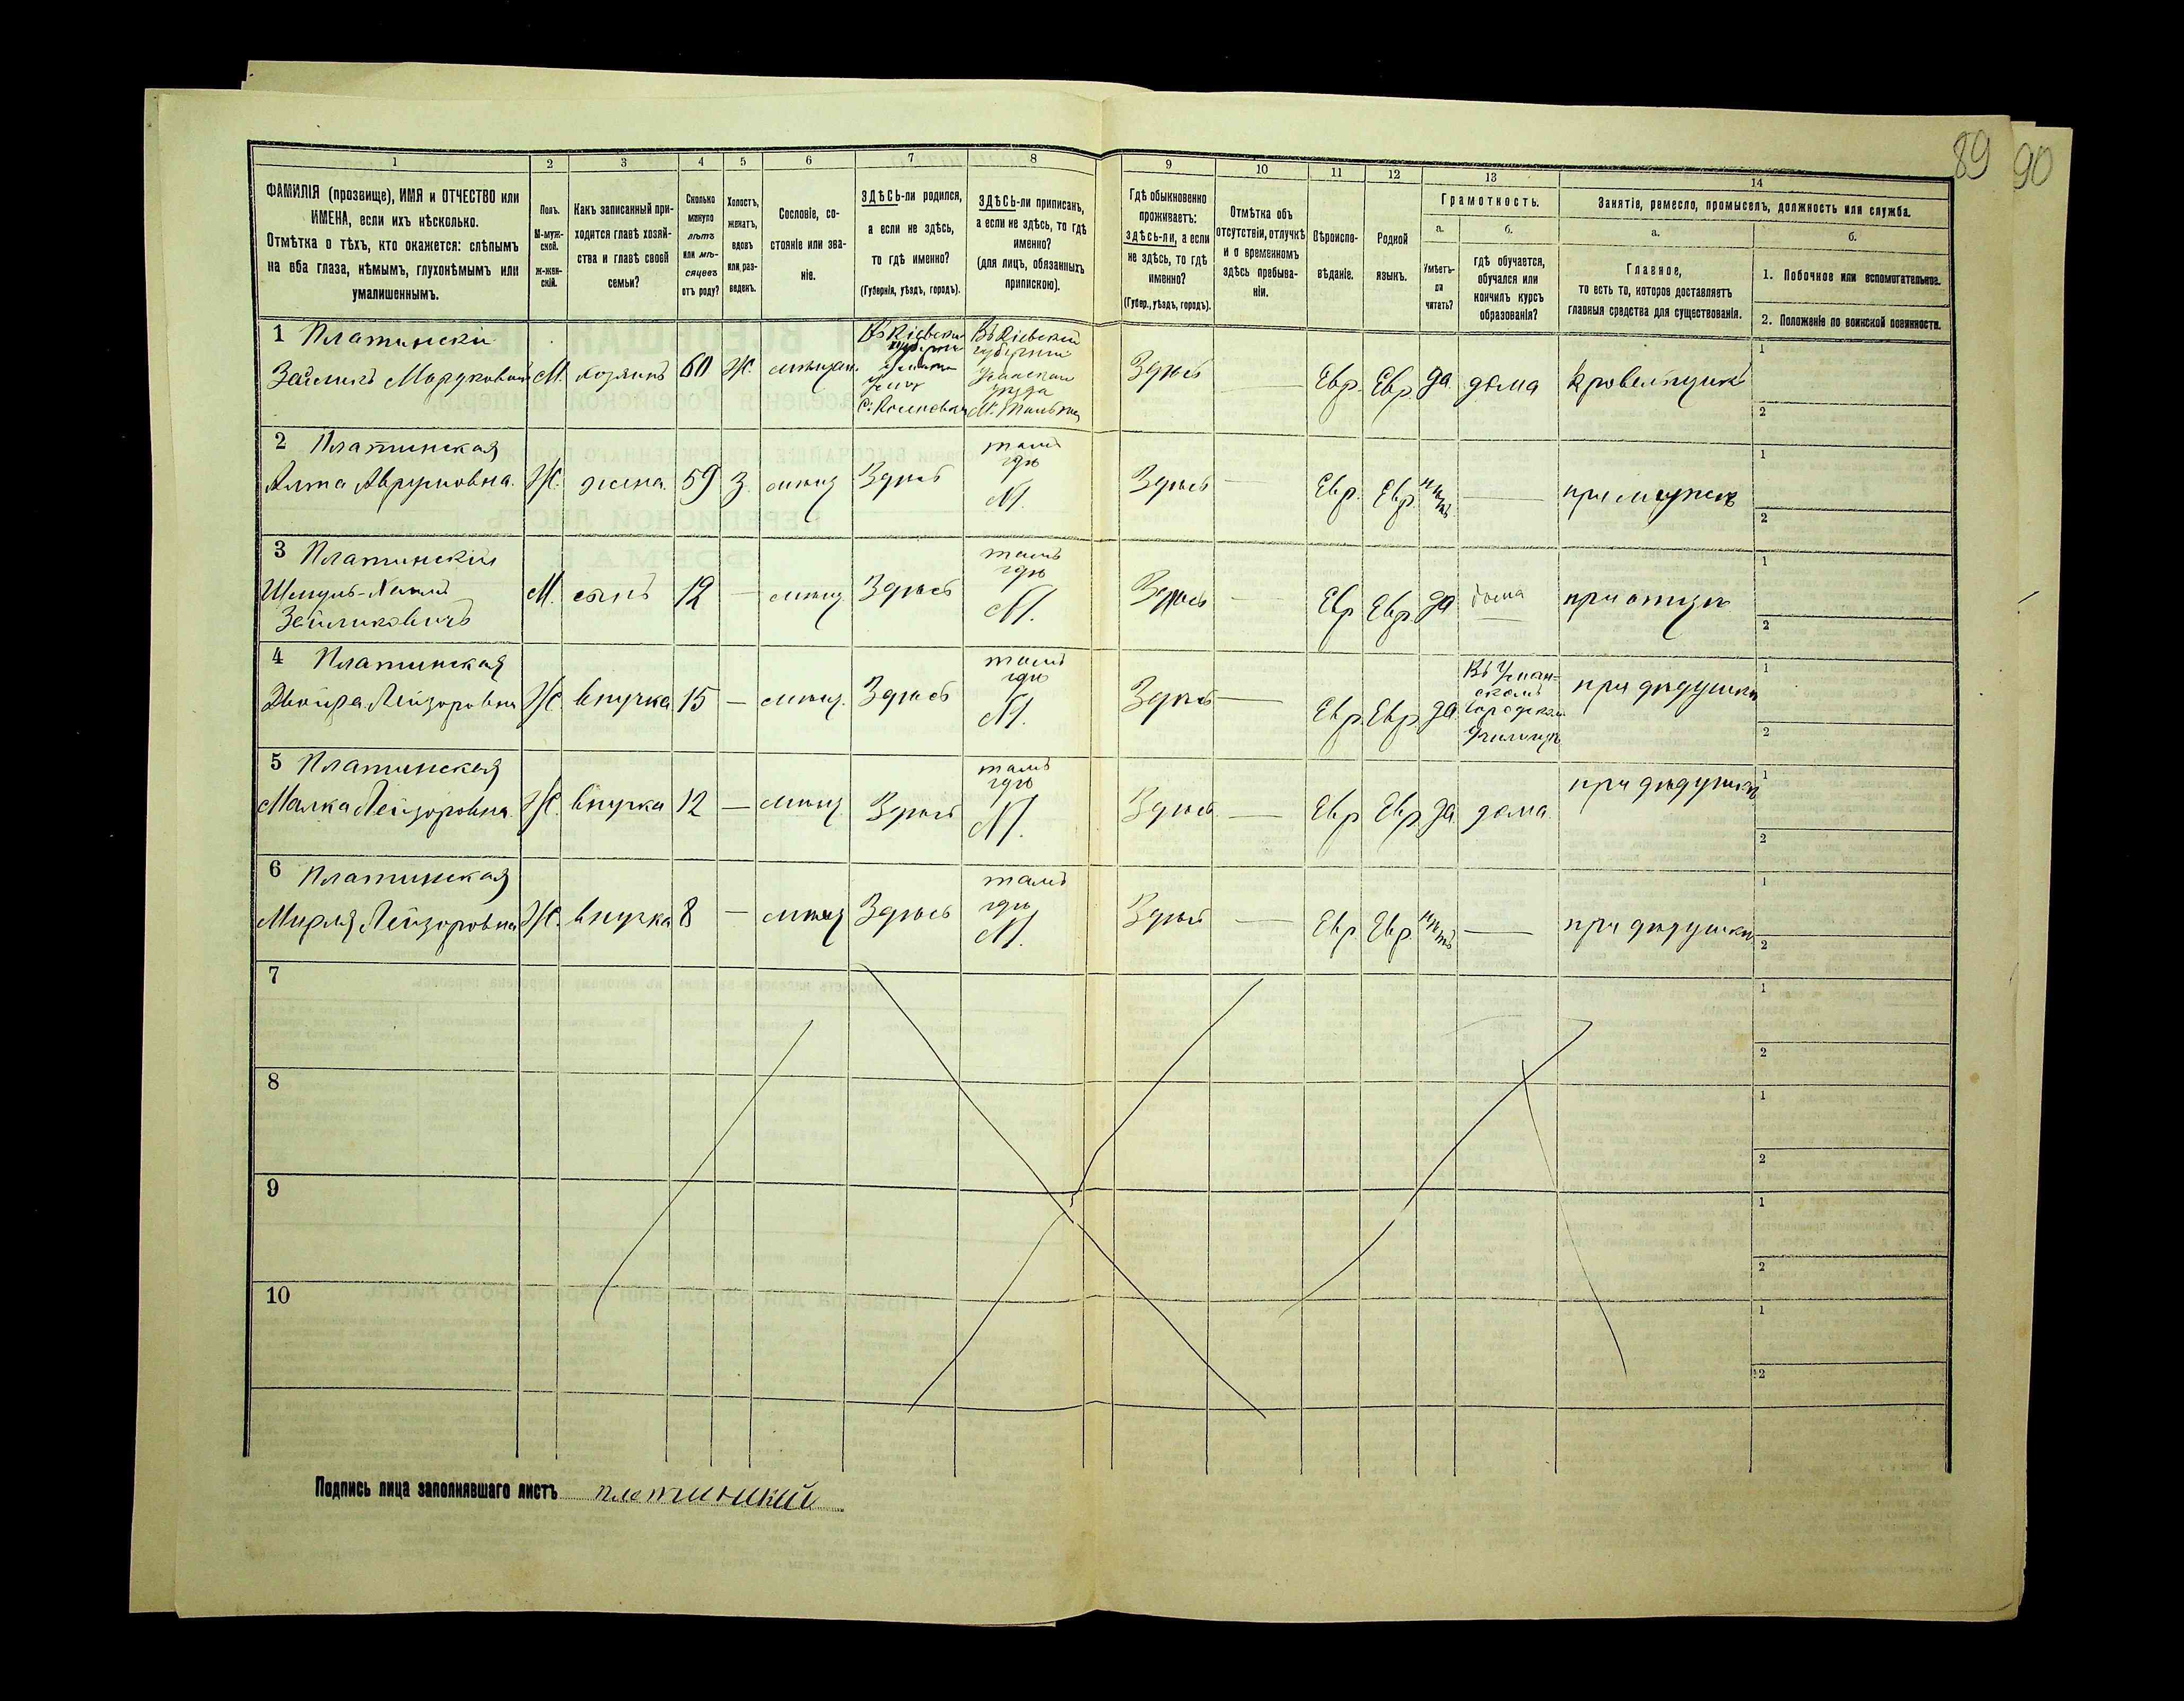 89 90
1 2 3 4 5 6 7 8 9 10 11 12 13 14
ФАМИЛІЯ (прозвище), ИМЯ и ОТЧЕСТВО или
ИМЕНА, если ихъ нѣсколько.
Отмѣтка о тѣхъ, кто окажется: слѣпымъ
на оба глаза, нѣмымъ, глухонѣмымъ или
умалишеннымъ.
Полъ.
М-муж-
ской.
Ж-жен-
скій.
Какъ записанный при-
ходится главѣ хозяй-
ства и главѣ своей
семьи?
Сколько
минуло
лѣтъ
или мѣ-
сяцевъ
отъ роду?
Холостъ,
женатъ,
вдовъ
или раз-
веденъ.
Сословіе, со-
стояніе или зва-
ніе.
ЗДѢСЬ-ли родился,
а если не здѣсь,
то гдѣ именно?
(Губернія, уѣздъ, городъ).
ЗДѢСЬ-ли приписанъ,
а если не здѣсь, то гдѣ
именно?
(для лицъ, обязанныхъ
припискою).
Гдѣ обыкновенно
проживаетъ:
здѣсь-ли, а если
не здѣсь, то гдѣ
именно?
(Губер., уѣздъ, городъ).
Отмѣтка объ
отсутствіи, отлучкѣ
и о временномъ
здѣсь пребыва-
ніи.
Вѣроиспо-
вѣданіе.
Родной
языкъ.
Грамотность.
а.
Умѣетъ-
ли
читать?
б.
гдѣ обучается,
обучался или
кончилъ курсъ
образованія?
Занятіе, ремесло, промыселъ, должность или служба.
а.
Главное,
то есть то, которое доставляетъ
главныя средства для существованія.
б.
1. Побочное или вспомогательное.
2. Положеніе по воинской повинности.
1 Платински
Зейликъ Мордковичъ М. хозяинъ 60 Ж. мѣщан.
Въ Кіевской
губерніи
Въ Кіевской
губерніи
Уманскаго
уѣзда
Здѣсь Евр. Евр. да дома Кровельщикъ
1
2
2 Платинская
Ж. жена. 59 З. мѣщ Здѣсь
тамъ
гдѣ
№1.
Здѣсь — Евр. Евр. нѣтъ — при мужѣ
1
2
3 Платинскій
Шмуль-
Зейликовичъ
М. сынъ 12 — мѣщ. Здѣсь
тамъ
гдѣ
№1.
Здѣсь — Евр Евр. да дома при отцѣ
1
2
4 Платинская
Двойра Лейзоровна Ж. внучка 15 — мѣщ. Здѣсь
тамъ
гдѣ
№1.
Здѣсь — Евр. Евр. да.
Въ Уман-
скомъ
Городском
Училищѣ
при дѣдушкѣ
1
2
5 Платинская
Малка Лейзоровна. Ж. внучка 12 — мѣщ. Здѣсь
тамъ
гдѣ
№1.
Здѣсь — Евр Евр. да. дома. при дѣдушкѣ
1
2
6 Платинская
Мирля Лейзоровна Ж. внучка 8 — мѣщ Здѣсь
тамъ
гдѣ
№1.
Здѣсь — Евр. Евр. нѣтъ — при дѣдушкѣ
1
2
7
1
2
8
1
2
9
1
2
10
1
2
Подпись лица заполнявшаго листъ платинский